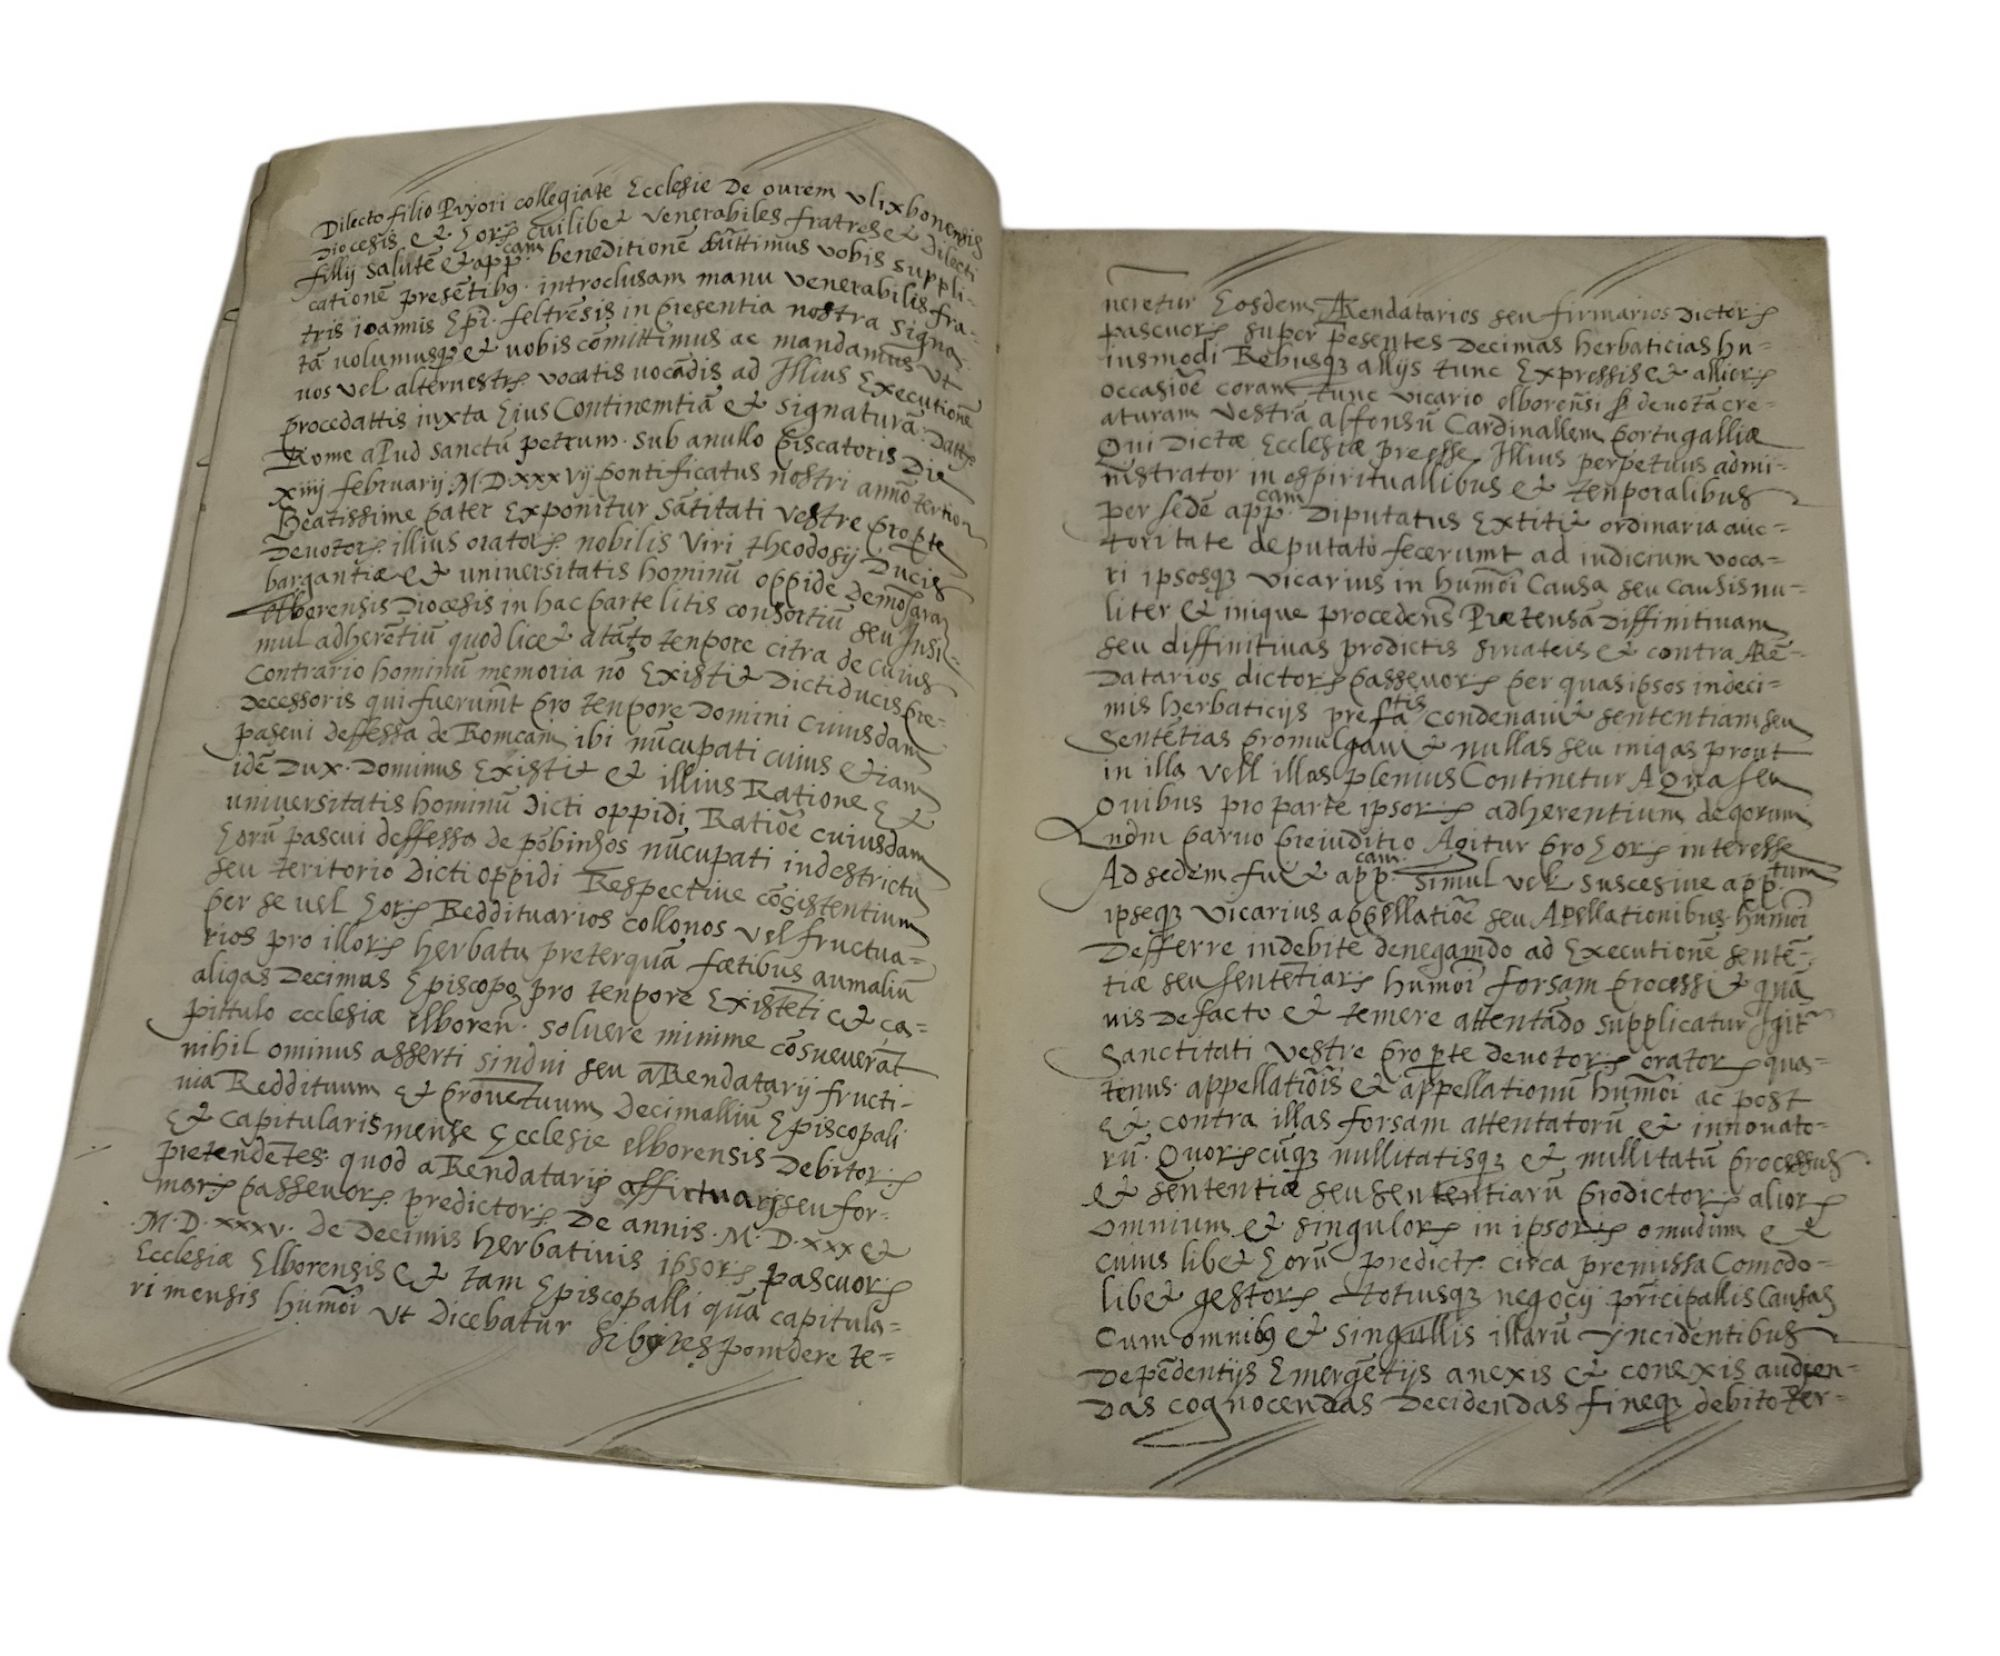 Dilecto filio Pryori collegiate Ecclesie De ourem vlixbonensis
Diocesis et hor cuilibet venerabiles fratres et Dilecti
fillij salutē et app.cam beneditionē Mittimus vobis suppli-
cationē presētibus introclusam manu venerabilis fra-
tris ioannis Epi. feltrēsis in presentia nostra signa-
tā uolumusq et uobis cōmittimus ac mandamus vt
uos vel alter vocatis uocādis ad Illius Executionē
procedattis iuxta Eius Continemtiā et signaturā. Datt
Rome apud sanctū petrum sub anullo piscatoris Die
xiiij februarij M.D.xxxvij pontificatus nostri anno tertio
Beatissime pater Exponitur sātitati vestre pro pte
Deuotor illius orator nobilis viri theodosij Ducis
bargantiæ et universitatis hominū oppide Demōsaras
elborensis Diocesis in hac parte litis consortiū seu Insi-
mul adherētiū quod licet atāto tenpore citra de cuius
contrario hominū memoria nō Existit Dicti ducis pre-
decessoris qui fuerumt pro tenpore Domini cuiusdam
pascui deffessa de Romcam ibi nūcupati cuius etiam
idē Dux Dominus Existit et illius Ratione Et
universitatis hominū dicti oppidi Ratiōe cuiusdam
horū pascui deffessa de pōbinhos nūcupati indestrictu
seu teritorio Dicti oppidi Respective cōsistentium
per se uel hor Reddituarios collonos vel fructua-
rios pro illor herbatu preterquā fœtibus aumaliū
aliqas Decimas Episcopo pro tenpore Existēti et ca-
pittulo ecclesiæ elboreñ. soluere minime cōsueverāt
nihil ominus asserti sindui seu aRendatarij fructi-
uia Reddituum et prouētuum Decimalliū Episcopali
et capitularis mense Ecclesie elborensis Debitor
pretendētes quod aRendatarij affictuarij seu for-
mar passeuor predictor De annis M.D.xxx et
M.D.xxxv. de Decimis herbativis ipsor pascuor
Ecclesiæ Elborensis et tam Episcopalli quā capitula-
ri mensis humōi vt Dicebatur sibi respomdere te-
neretur Eosdem ARendatarios seu firmarios dictor
pascuor super pesentes Decimas herbaticias hu-
iusmodi Rebusq allijs tunc Expressis et allior
occasiōe coram tunc vicario elborēnsi p deuotā cre-
aturam vestrā alfonsū Cardinallem portugalliæ
Qui Dictæ Ecclesiæ preesse Illius perpetuus admi-
nistrator in espirituallibus et tenporalibus
per sedē app.cam Diputatus Extitit ordinaria auc-
toritate deputato fecerumt ad iudicium voca-
ri ipsosq vicarius in humōi Causa seu causis nu-
liter et inique procedens Prætensā Diffinitiuam
seu diffinitiuas prodictis et contra ARē-
datarios dictor passeuor per quas ipsos indeci-
mis herbaticijs prefatis condenauit sententiam seu
sentētias promulgauit nullas seu iniqas prout
in illa vell illas plenius Continetur AQua seu
Quibus pro parte ipsor adherentium deqorum
nōm paruo preiuditio Agitur pro hor interesse
Ad sedem fuit app.cam simul vel suscesiue app.tum
ipseq vicarius appellatiōe seu Apellationibus humōi
Defferre indebite denegamdo ad Executionē sentē-
tiæ seu sentētiar humōi forsam processit quā
uis De facto et temere attentādo supplicatur Igit
Sanctitati vestre pro pte deuotor orator qua-
tenus appellatiōis et appellationū humōi ac post
et contra illas forsam attentatorū et innouato-
rū. Quorcūq nullitatisq et nullitatū processus
et sententiæ seu sententiarū prodictor alior
omnium et singulor in ipsor omudum et
cuius libet horū predict circa premissa Comodo-
libet gestor totiusq negocij prīcipallis Causas
cum omnibq et singullis illarū yncidentibus
Depēdentijs Emergētijs anexis et conexis audien-
das cognocendas Decidendas fineq debito ter-